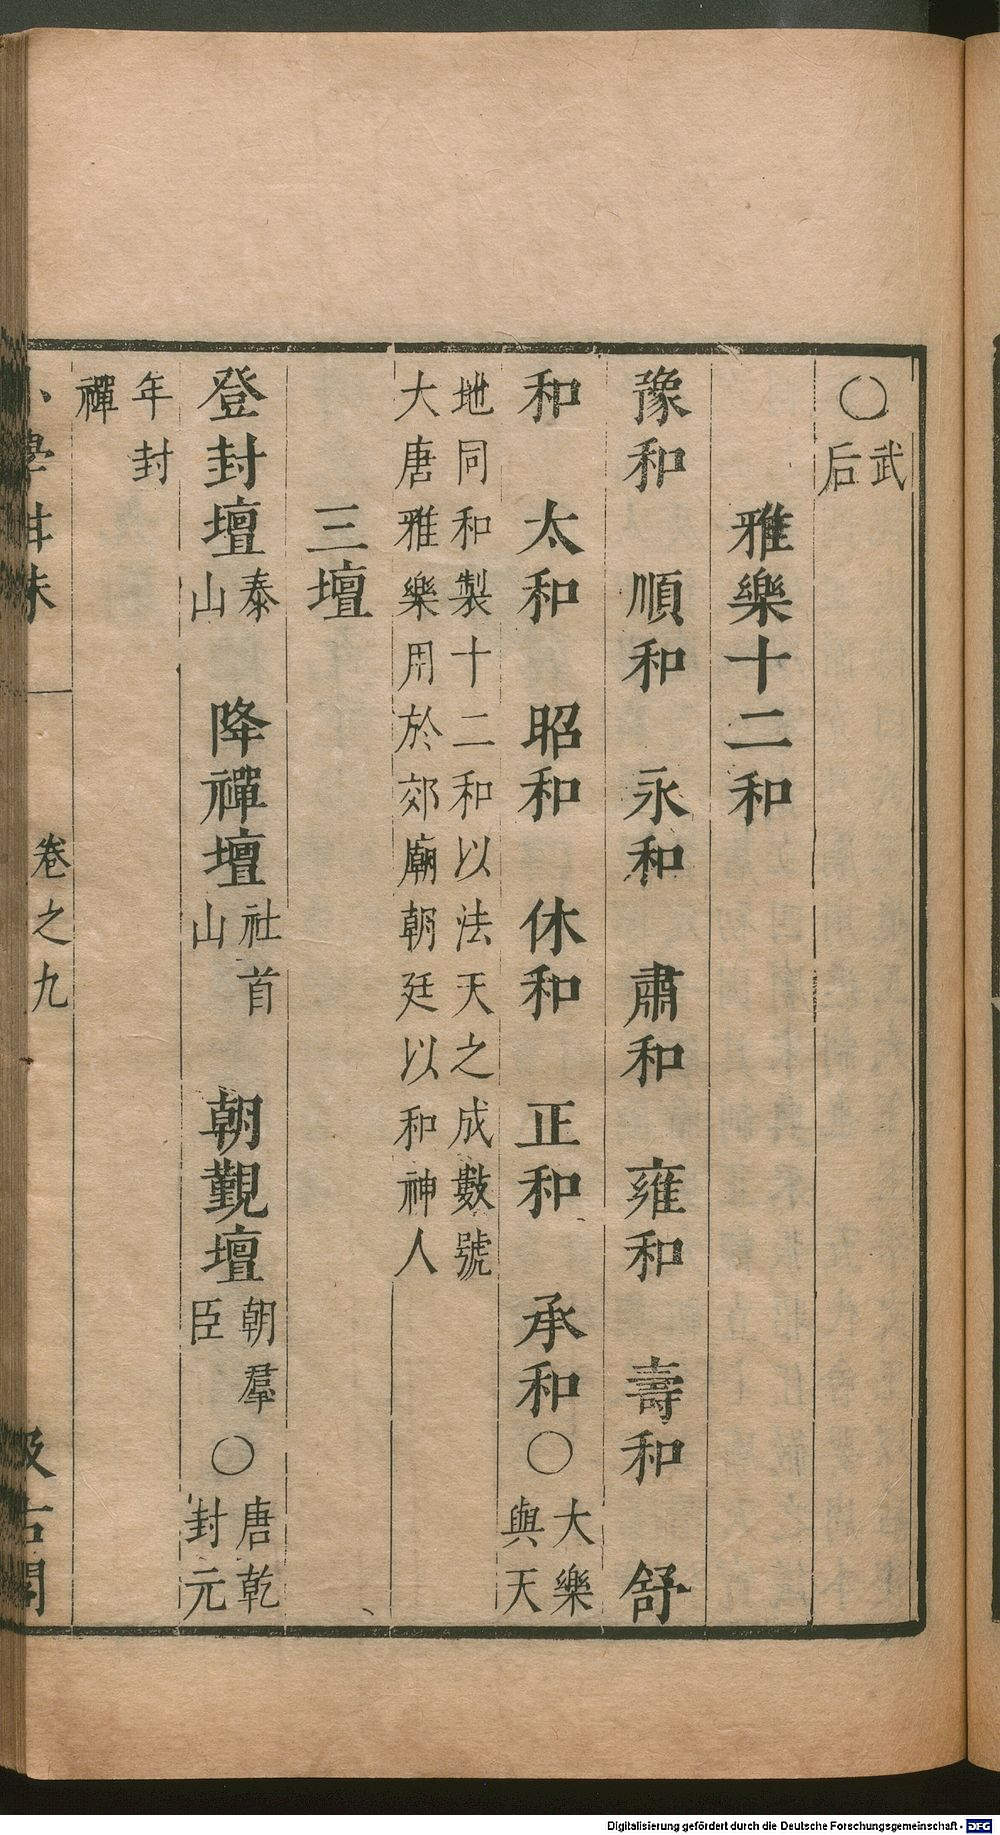 〇武后
雅樂十二和
豫和 順和 永和 肅和 雍和 壽和 舒
和 太和 昭和 休和 正和 承和〇大樂與天
地同和製十二和以法天之成數號
大唐雅樂用於郊廟朝廷以和神人
三壇
登封壇泰山 降禪壇社首山 朝覲壇朝羣臣〇唐乾封元
年封禪
小學紺珠 卷之九 汲古閣
Digitalisierung gefördert durch die Deutsche Forschungsgemeinschaft - DFG